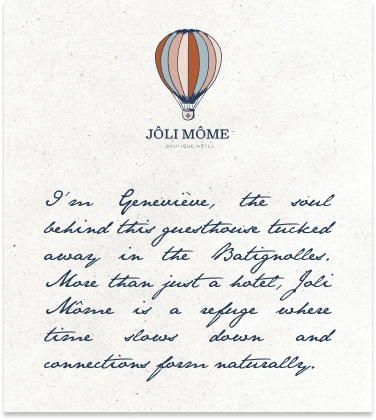 JÔLI MÔME
BOUTIQUE HÔTEL
I'm Geneviève, the soul
behind this guesthouse tucked
away in the Batignolles.
More than just a hotel, Joli
Môme is a refuge where
time slows down and
connections form naturally.